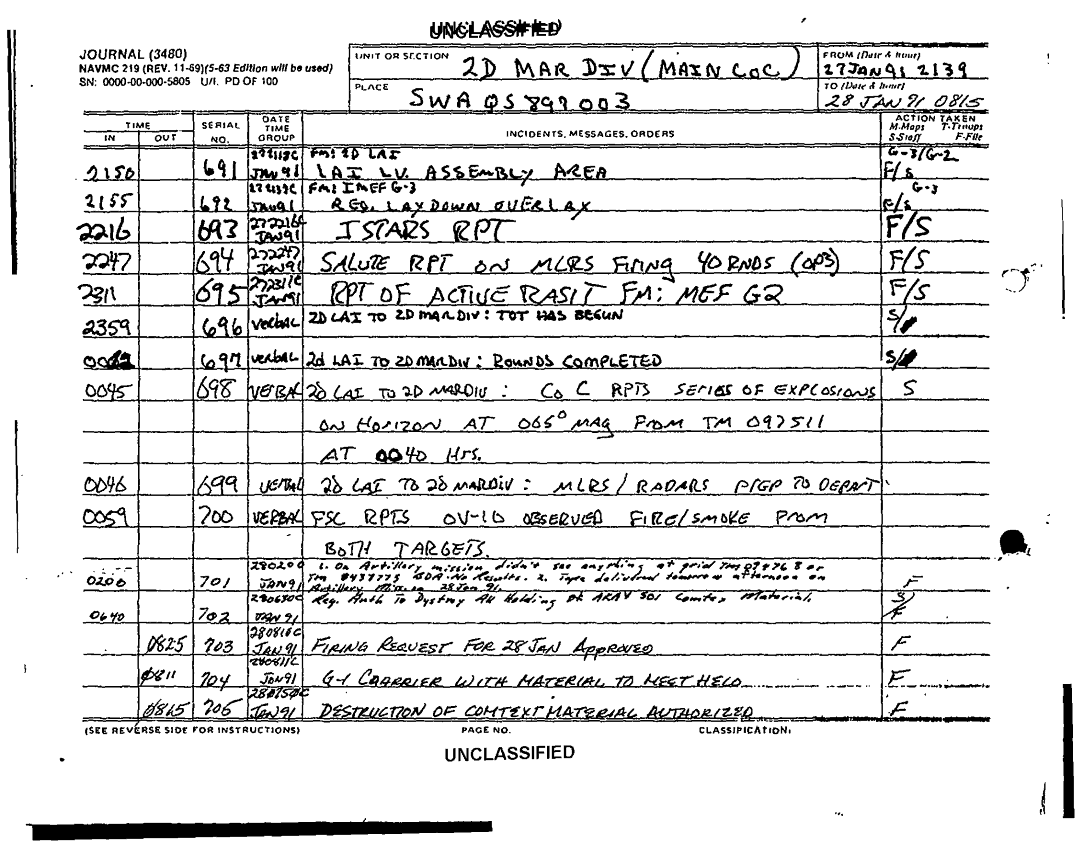 UNCLASSIFIED
JOURNAL (3480)
NAVMC 219 (REV. 11-69)(5-63 Edition will be used)
SN: 0000-00-000-5805 U/I. PD OF 100
UNIT OR SECTION 2D MAR DIV (MAIN COC)
PLACE SWA QS 899 003
FROM (Date & hour) 27 JAN 91 2139
TO (Date & hour) 28 JAN 91 0815
TIME IN OUT SERIAL NO. DATE TIME GROUP INCIDENTS, MESSAGES, ORDERS ACTION TAKEN M-Maps T-Troops S-Staff F-File
FM: 2D LAI G-3/G-2
2150 691 JAN 91 LAI LV. ASSEMBLY AREA F/S
FM: IMEF G-3 G-3
2155 692 JAN 91 REQ. LAYDOWN OVERLAY F/S
2216 693 272216C JAN 91 JSTARS RPT F/S
2247 694 272247 JAN 91 SALUTE RPT ON MLRS FIRING 40 RNDS (OPS) F/S
2311 695 272311C JAN 91 RPT OF ACTIVE RASIT FM: MEF G2 F/S
2359 696 VERBAL 2D LAI TO 2D MAR DIV: TOT HAS BEGUN S/
697 VERBAL 2d LAI TO 2D MAR DIV: ROUNDS COMPLETED S/
0045 698 VERBAL 2d LAI TO 2D MARDIV: CO C RPTS SERIES OF EXPLOSIONS S
ON HORIZON AT 065° MAG FROM TM 097511
AT 0040 HRS.
0046 699 VERBAL 2d LAI TO 2d MARDIV: MLRS/RADARS PREP TO DEPART
0059 700 VERBAL FSC RPTS OV-10 OBSERVED FIRE/SMOKE FROM
BOTH TARGETS.
280200 1. On Artillery mission didn't see anything at grid or
0200 701 JAN 91 TM 8437775 BDA-No Results. 2. Tape delivered tomorrow afternoon on F
Artillery Mission 28 Jan 91.
280630C Req. Auth To Destroy All Holding Of AKAV 501 Comtex Material. S/
0640 702 JAN 91 F
0825 703 280810C JAN 91 FIRING REQUEST FOR 28 JAN APPROVED F
0811 704 280811C JAN 91 G-1 COARRIER WITH MATERIAL TO MEET HELO F
0815 705 280750C JAN 91 DESTRUCTION OF COMTEXT MATERIAL AUTHORIZED F
(SEE REVERSE SIDE FOR INSTRUCTIONS) PAGE NO. CLASSIFICATION:
UNCLASSIFIED